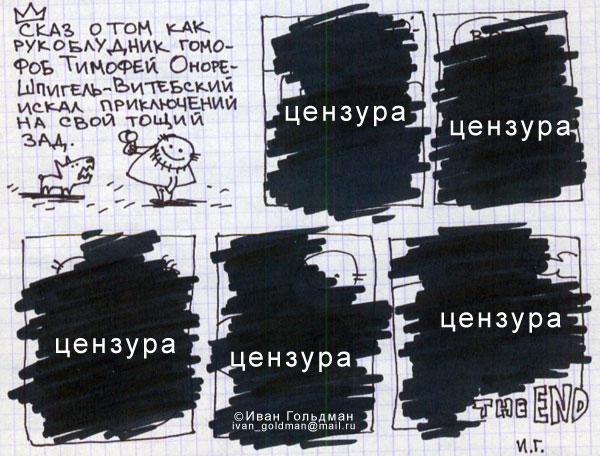 СКАЗ О ТОМ КАК
РУКОБЛУДНИК ГОМО-
ФОБ ТИМОФЕЙ ОНОРЕ-
ШПИГЕЛЬ-ВИТЕБСКИЙ
ИСКАЛ ПРИКЛЮЧЕНИЙ
НА СВОЙ ТОЩИЙ
ЗАД.
цензура
цензура
цензура
цензура
цензура
THE END
©Иван Гольдман
ivan_goldman@mail.ru
И.Г.